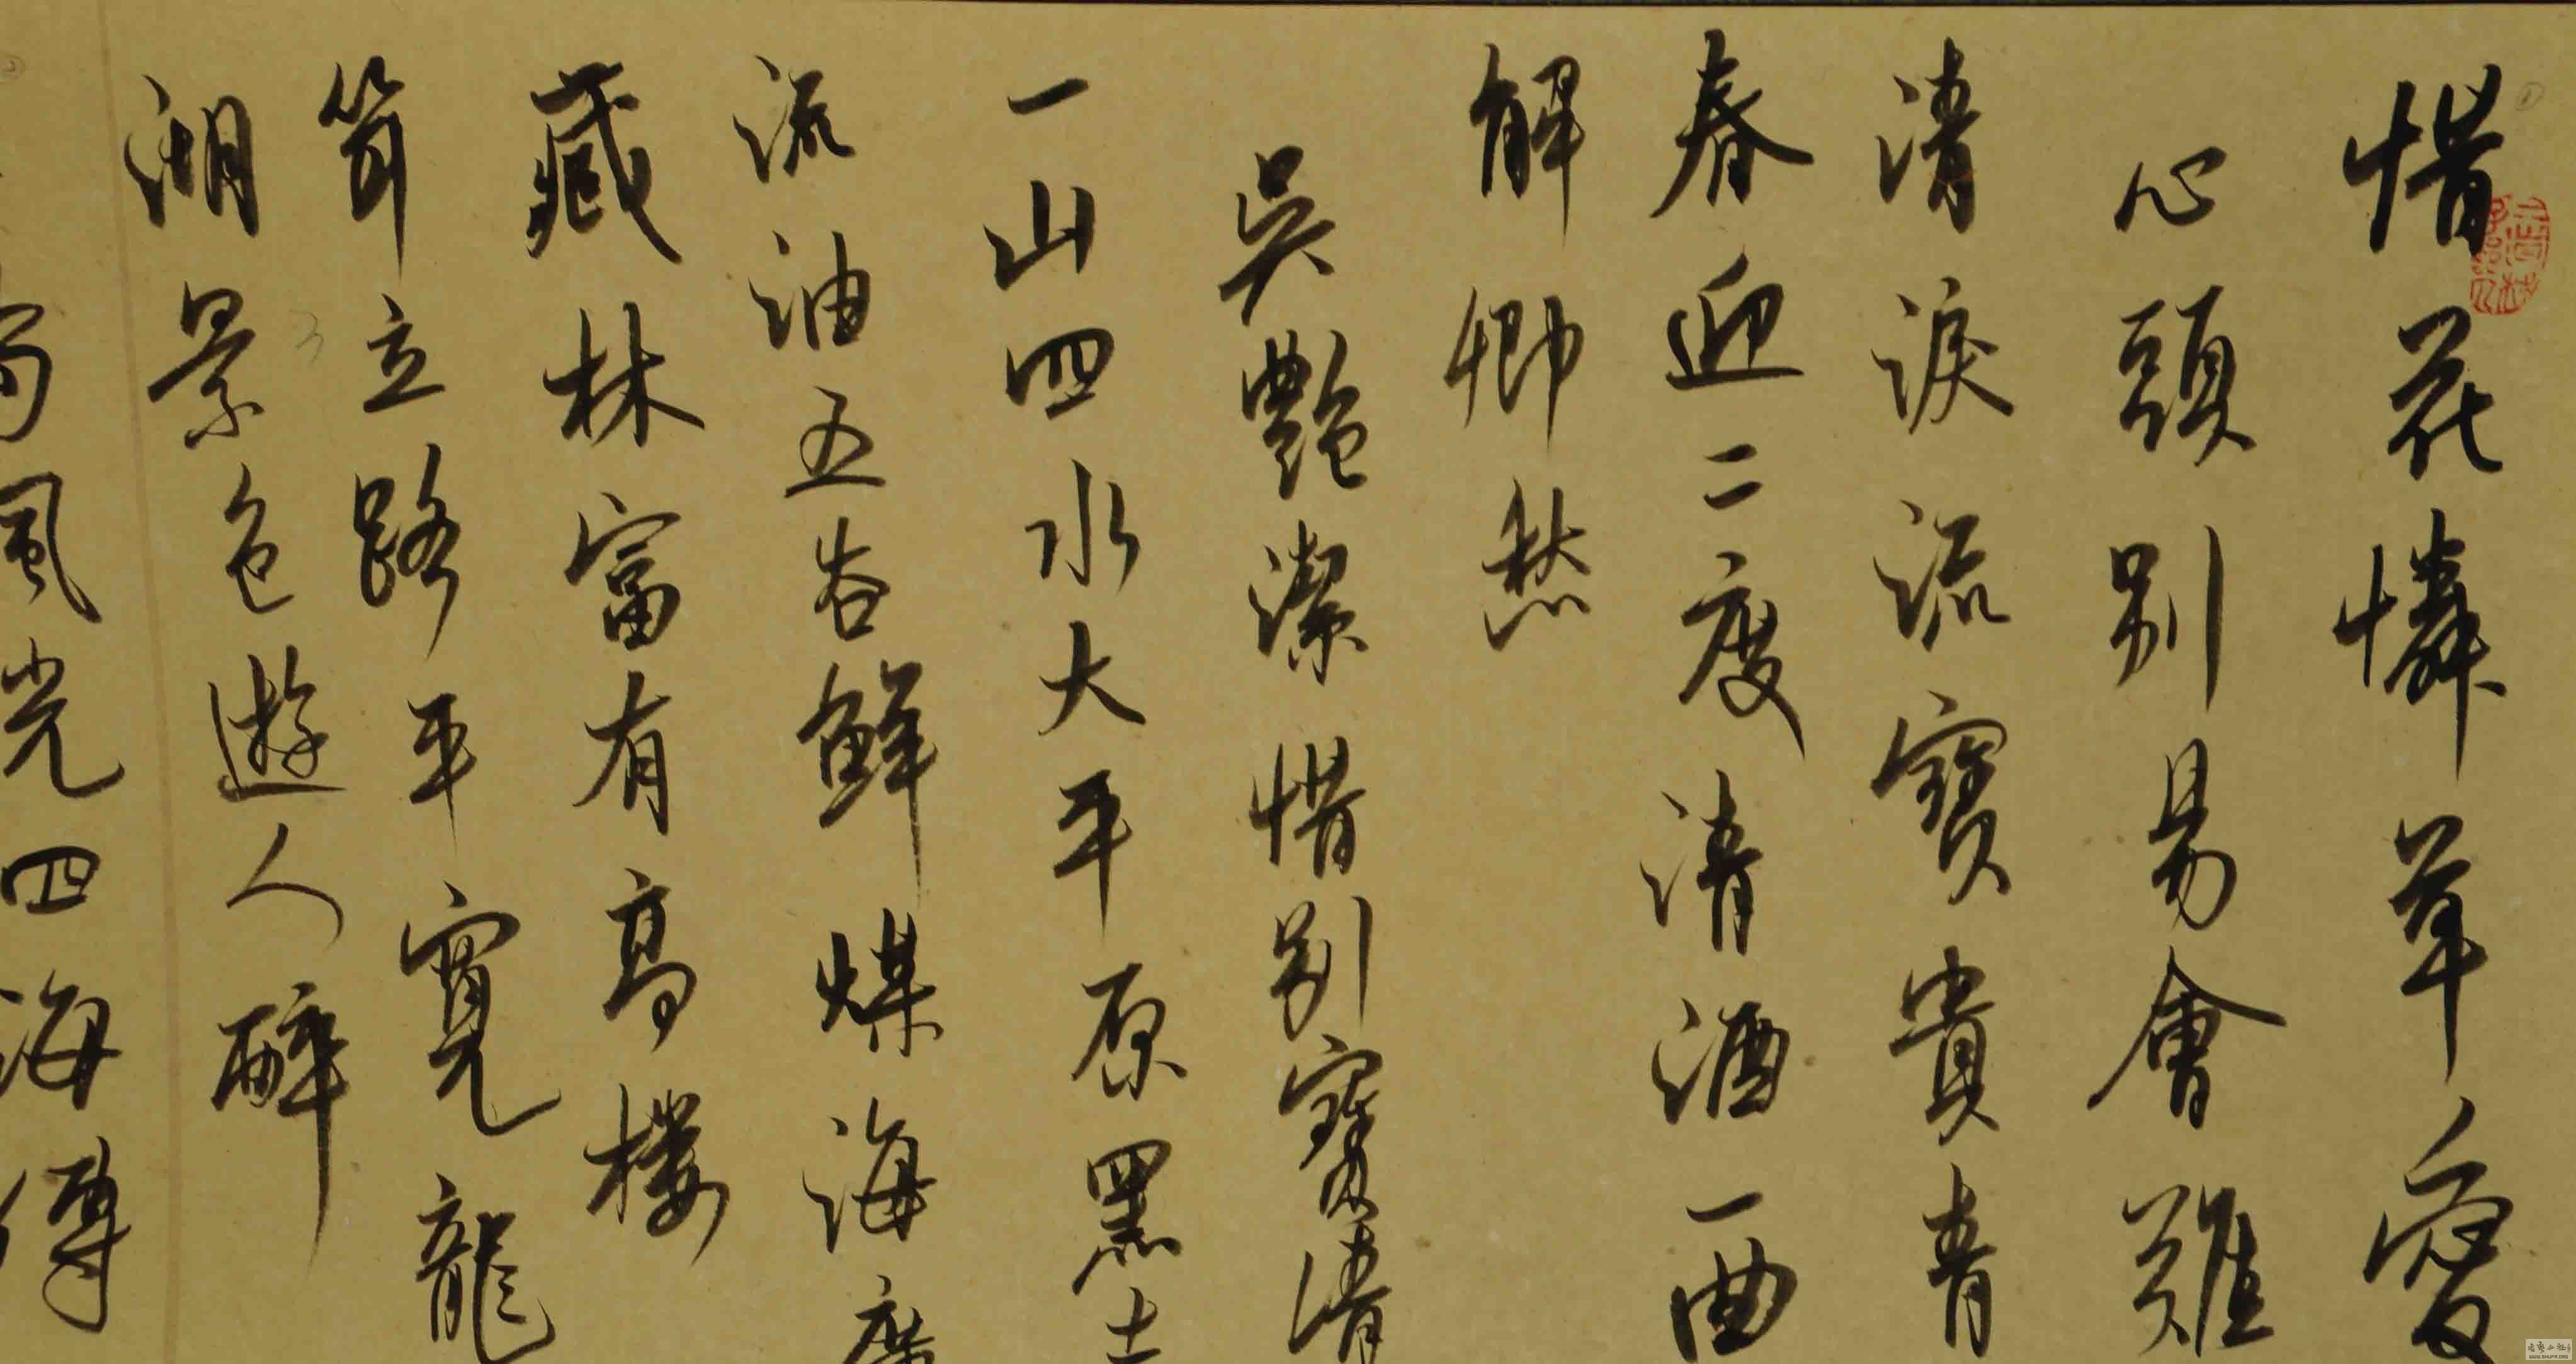 惜花憐草愛
心頭別易會難
清淚流寶貴青
春迎二度清酒一曲
解卿愁
吳艷潔惜別寶清
一山四水大平原黑土
流油五谷鮮煤海
藏林富有高樓
聳立路平寬龍
湖景色遊人醉
風光四海傳